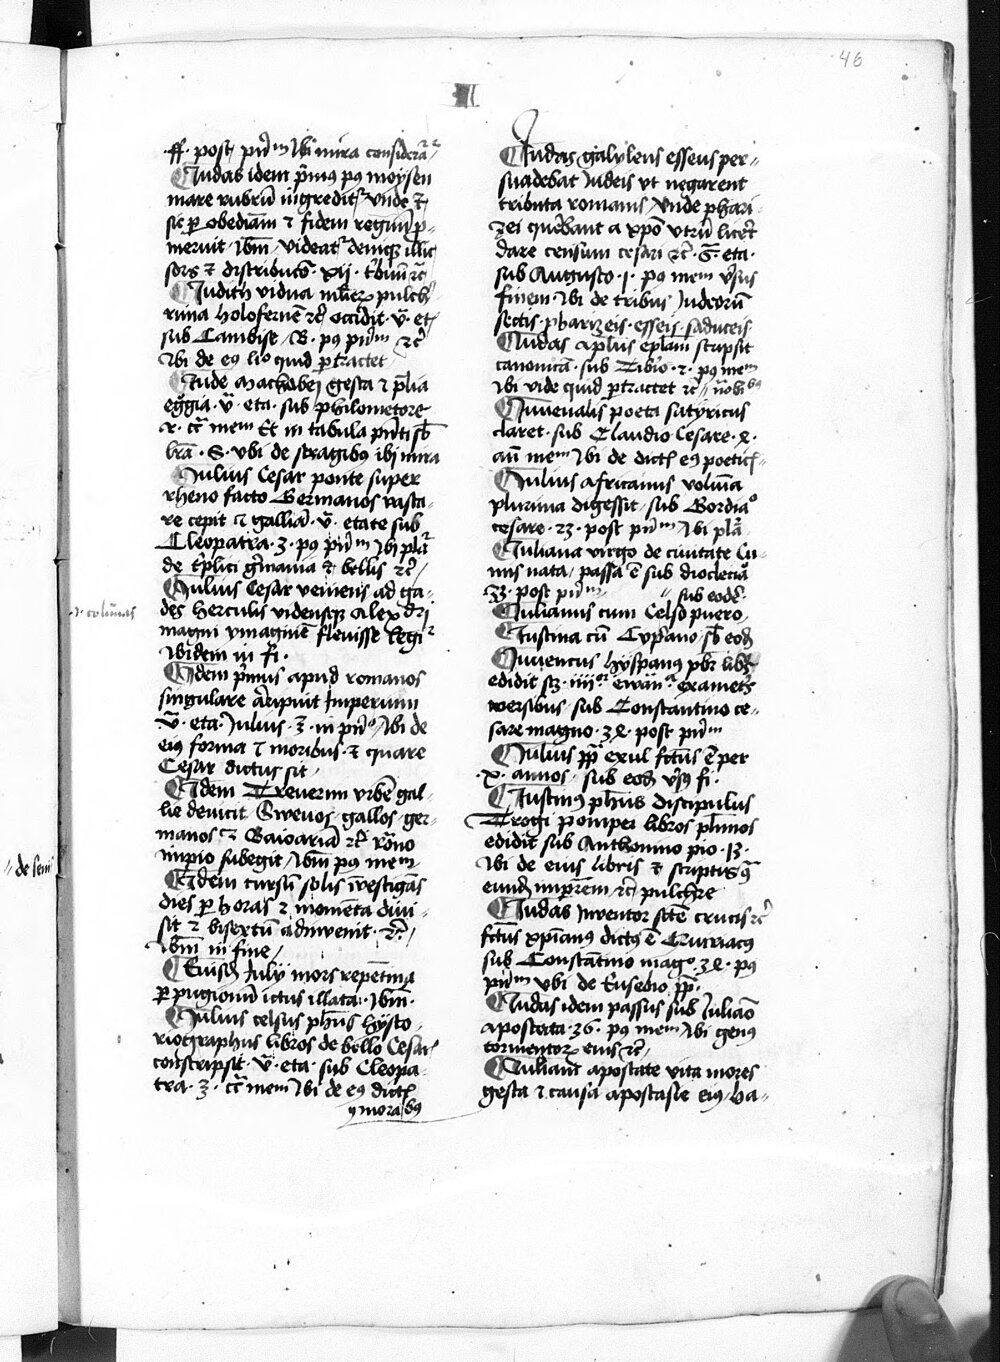 46
I
ff. post prīm Ibi mira considerāt
Judas idem prīus pꝯ moysen
mare rubrū ingredit̄ vnde ⁊
sic ꝑ obediām ⁊ fidem regnū p̄-
meruit · Ibm̄ · videat̄ deniqꝫ illic
sors ⁊ distributō · xij · tribuū ⁊c̄
Judith vidua mulier pulcher-
rima holofernē ⁊c̄ occidit · v̄ · et
sub Cambise · B · pꝯ prīm ⁊c̄
Ibi de eꝯ lio quid ꝑtractet
Jude Machabei gesta ⁊ p̄lia
egḡia · v̄ · eta · sub philometore
mem Et in tabula
brā · S · vbi de stragibꝯ ibi mira
Julius Cesar ponte super
rheno facto Germanos vasta-
re cepit ⁊ galliā · v̄ · etate sub
Cleopatra · 3 · pꝯ prīm Ibi plār̄
de tp̄lici gr̄mania ⁊ bellis ⁊c̄
Julius Cesar veniens ad ga-
des herculis vidensqꝫ Alexādri
· columnas
magni ymaginē flevisse legit̄
Ibidem in fi ·
Idem prīmus apud romanos
singulare arripuit Imperium
v̄ · eta · Julius · 3 · in prīo Ibi de
eius forma ⁊ moribus · ⁊ quare
Cesar dictus sit
Idem Treverim vrbē gal-
lie devicit Swevos gallos ger-
manos ⁊ Baioariā ⁊c̄ rōno
impio subegit Ibm̄ pꝯ mem
de sem
Idem cursū solis īvestigās
dies ꝑ horas ⁊ momēta divi-
sit ⁊ bisextū adinvenit · ⁊c̄ ·
Ibm̄ in fine
Eiusdē Julij mors repētina
ꝑ pugionū ictus illata · Ibm̄ ·
Julius celsus ph̄us hysto-
riographus libros de bello Cesar̄
conscripsit · v̄ · eta · sub Cleopa-
tra · 3 · mem Ibi de eꝯ dict̄
ꝯ moribꝯ
Judas galyleus esseus per-
suadebat Judeis vt negarent
tributa romanis vnde phari-
zei querebant a xp̄o vtrū licet
dare censum cesari ⁊c̄ · S · eta ·
sub Augusto · 1 · pꝯ mem v̄sus
finem Ibi de tribus Judeorū
sectis · pharizeis · esseis · saduceis
Judas ap̄lus ep̄lam scripsit
canonicā · sub Tiberio · 2 · pꝯ mem
Ibi vide quid ꝑtractet ⁊c̄
Juvenalis poeta satyricus
claret · sub Claudio Cesare · ꝛ ·
an̄ mem Ibi de dict̄ eꝯ poetic̄
Julius Africanus volumīa
plurima digessit · sub Gordiāo
cesare · 23 · post prīm Ibi plā
Juliana virgo de civitate Cu-
mis nata / passa ē sub dioclecia
33 · post prīm
sub eodē ·
Julianus cum Celso puero
Justina cū Cypriano sb̄ eodē
Juvencus hyspanꝯ pb̄r libr̄
edidit sc̄ȥ iiiior ewāna exametr̄
versibus · sub Constantino ce-
sare magno · 34 · post prīm
Julius pp̄ exul fctūs ē per
· x · annos · sub eodē v̄sꝯ fi ·
Justinꝯ ph̄us discipulus
Trogi pompei libros plīmos
edidit sub Anthonino pio · 13 ·
Ibi de eius libris ⁊ scriptis
eundē imp̄rem ⁊c̄ pulchre
Judas Inventor scē crucis ⁊c̄
fctūs xp̄ianꝯ dictꝯ ē Quiriacꝯ
sub Constantino magº 34 · pꝯ
prīm vbi de Eusebio pp̄ ·
Judas idem passus sub Juliāo
apostata · 36 · pꝯ mem Ibi genꝯ
tormentoꝝ eius ⁊c̄
Juliani apostate vita mores
gesta ⁊ causa apostasie eiꝯ ha-